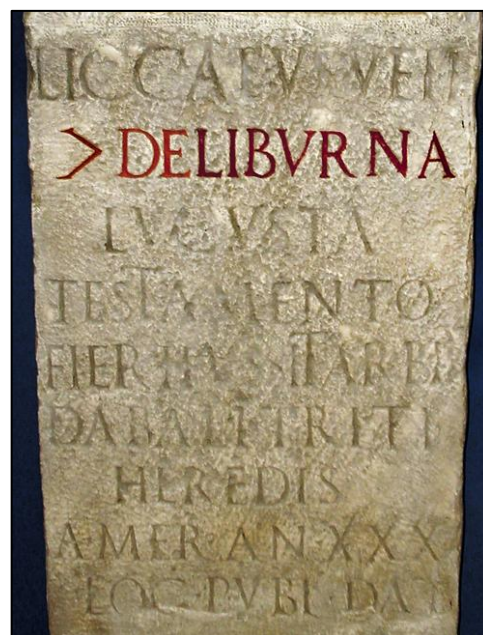 LICCAEVS
> DELIBVRNA
AVGVSTA
TESTAMENTO
FIERI IVSSIT ARBI
DABALI TRITI
HEREDIS
AMER AN XXX
LOC PVBL DAT